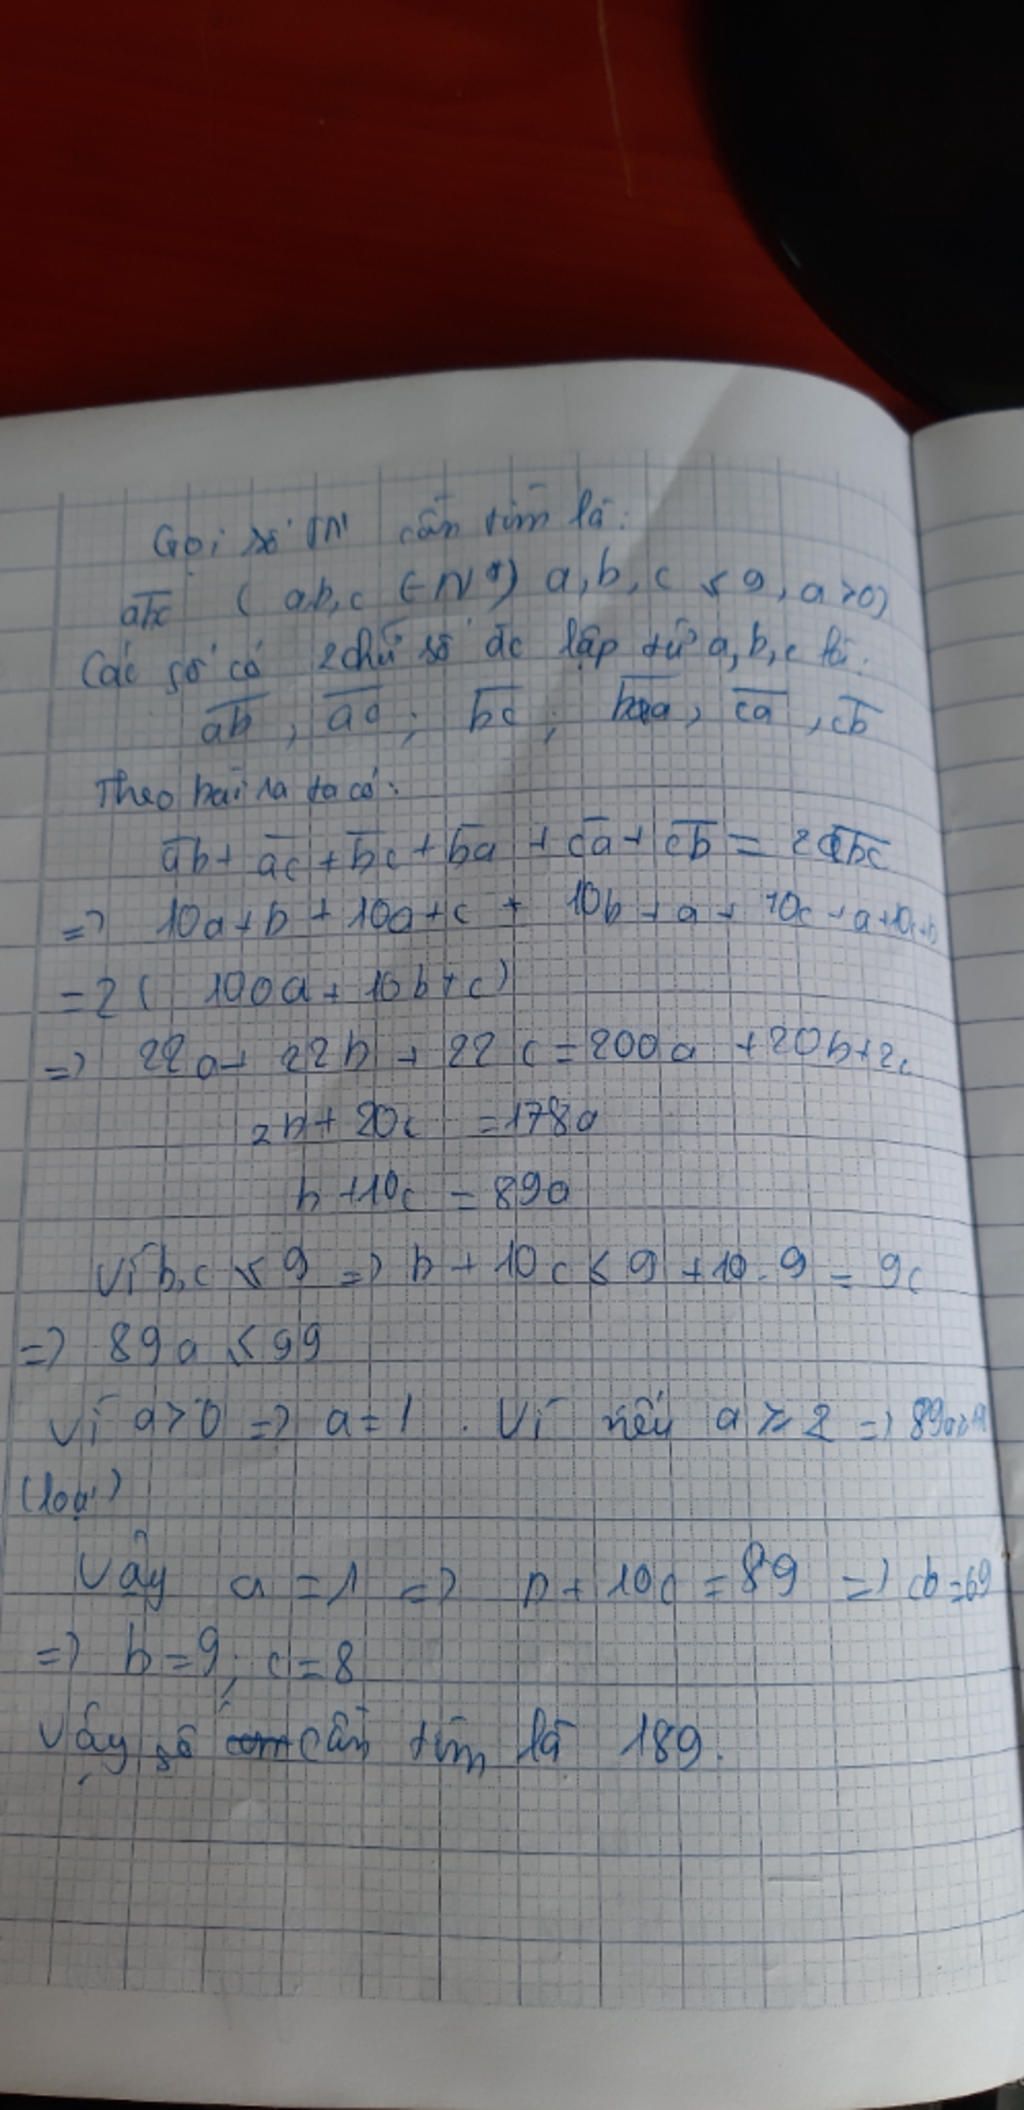 Gọi số TN cần tìm là:
abc (a,b,c ∈ N*) a,b,c ≤ 9, a>0)
Các số có 2 chữ số đc lập từ a,b,c là:
ab, ac; bc; ba, ca, cb
Theo bài ra ta có:
ab + ac + bc + ba + ca + cb = 2abc
=> 10a+b + 10a+c + 10b+a+ 10c+a+10c+b
=2( 100a + 10b+c)
=> 22a+ 22b + 22c=200a +20b+2c
2b+ 20c =178a
b +10c = 89a
Vì b,c ≤ 9 => b + 10c ≤ 9 +10.9 = 9c
=> 89a ≤ 99
Vì a>0 => a=1. Vì nếu a ≥ 2 => 89a>
(loại)
Vậy a=1 => b + 10c = 89 => cb=69
=> b=9; c=8
Vậy số cần tìm là 189.